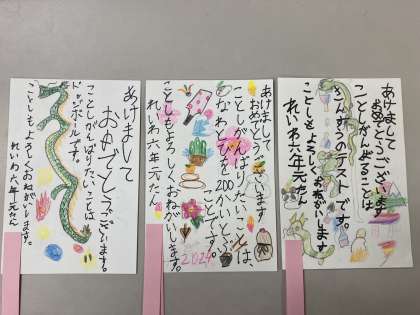 あけまして
おめでとうございます。
ことしがんばりたいことは
ドッジボールです。
ことしもよろしくおねがいします。
れいわ六年元たん
あけまして
おめでとうございます
ことしがんばりたいことは、
なわとびを200かいとぶことです。
ことしもよろしくおねがいします。
れいわ六年元たん
2024
あけまして
おめでとうございます
ことしがんばることは
さんすうのテストです。
ことしもよろしくおねがいします
れいわ六年元たん